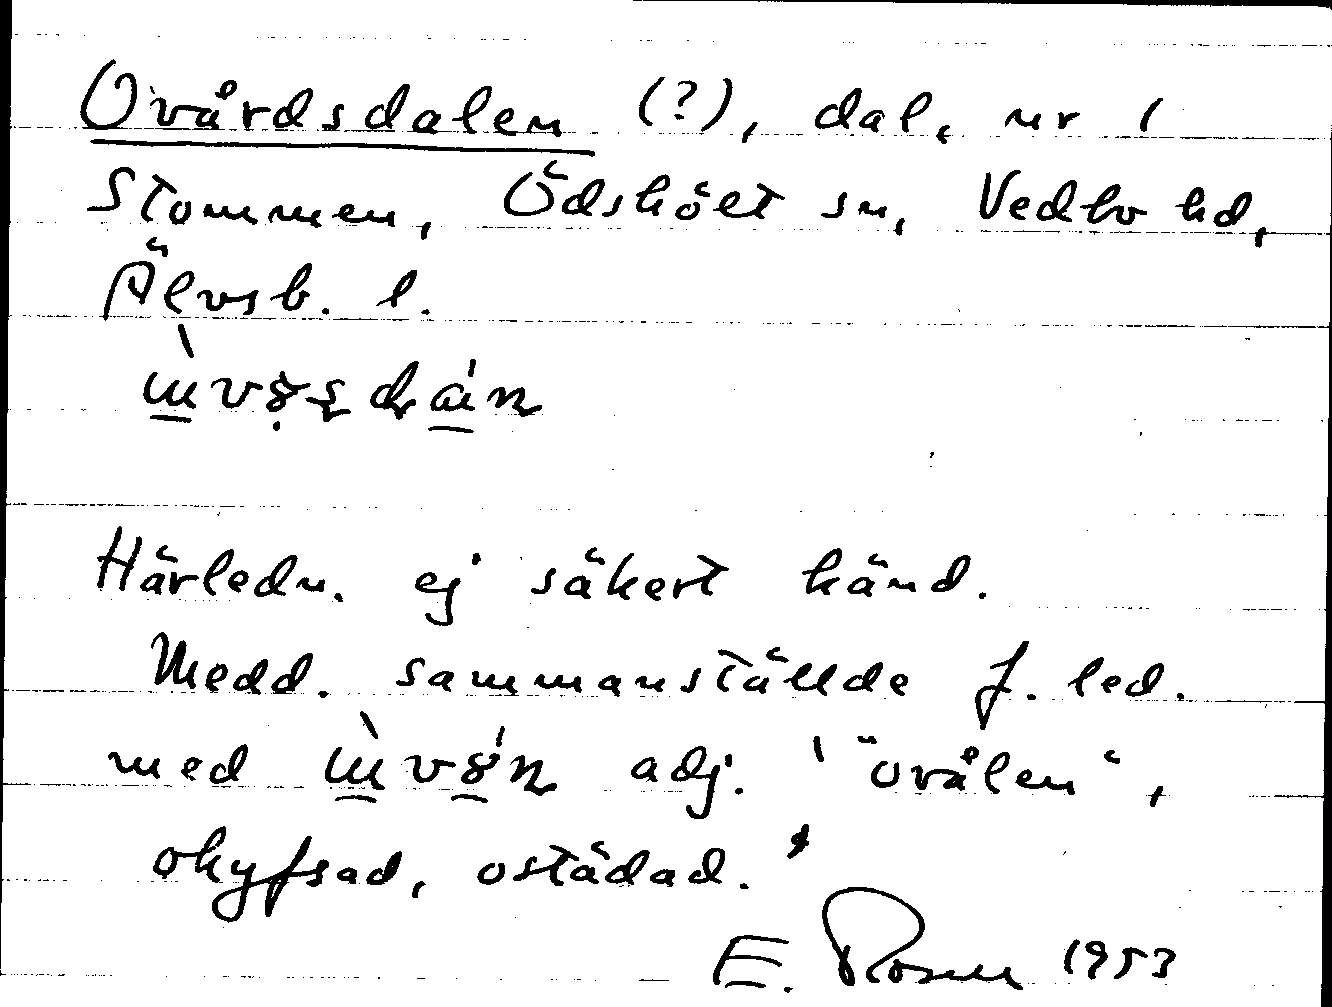 Ovårdsdalen (?), dal, nr 1
Stommen, Ödsköelt sn, Vedbo hd,
Älvsb. l.
Härledn. ej säkert känd.
Medd. sammanställde f. led.
med adj. '"ovålen",
okyfsad, ostädad.'
E. Rosen 1953